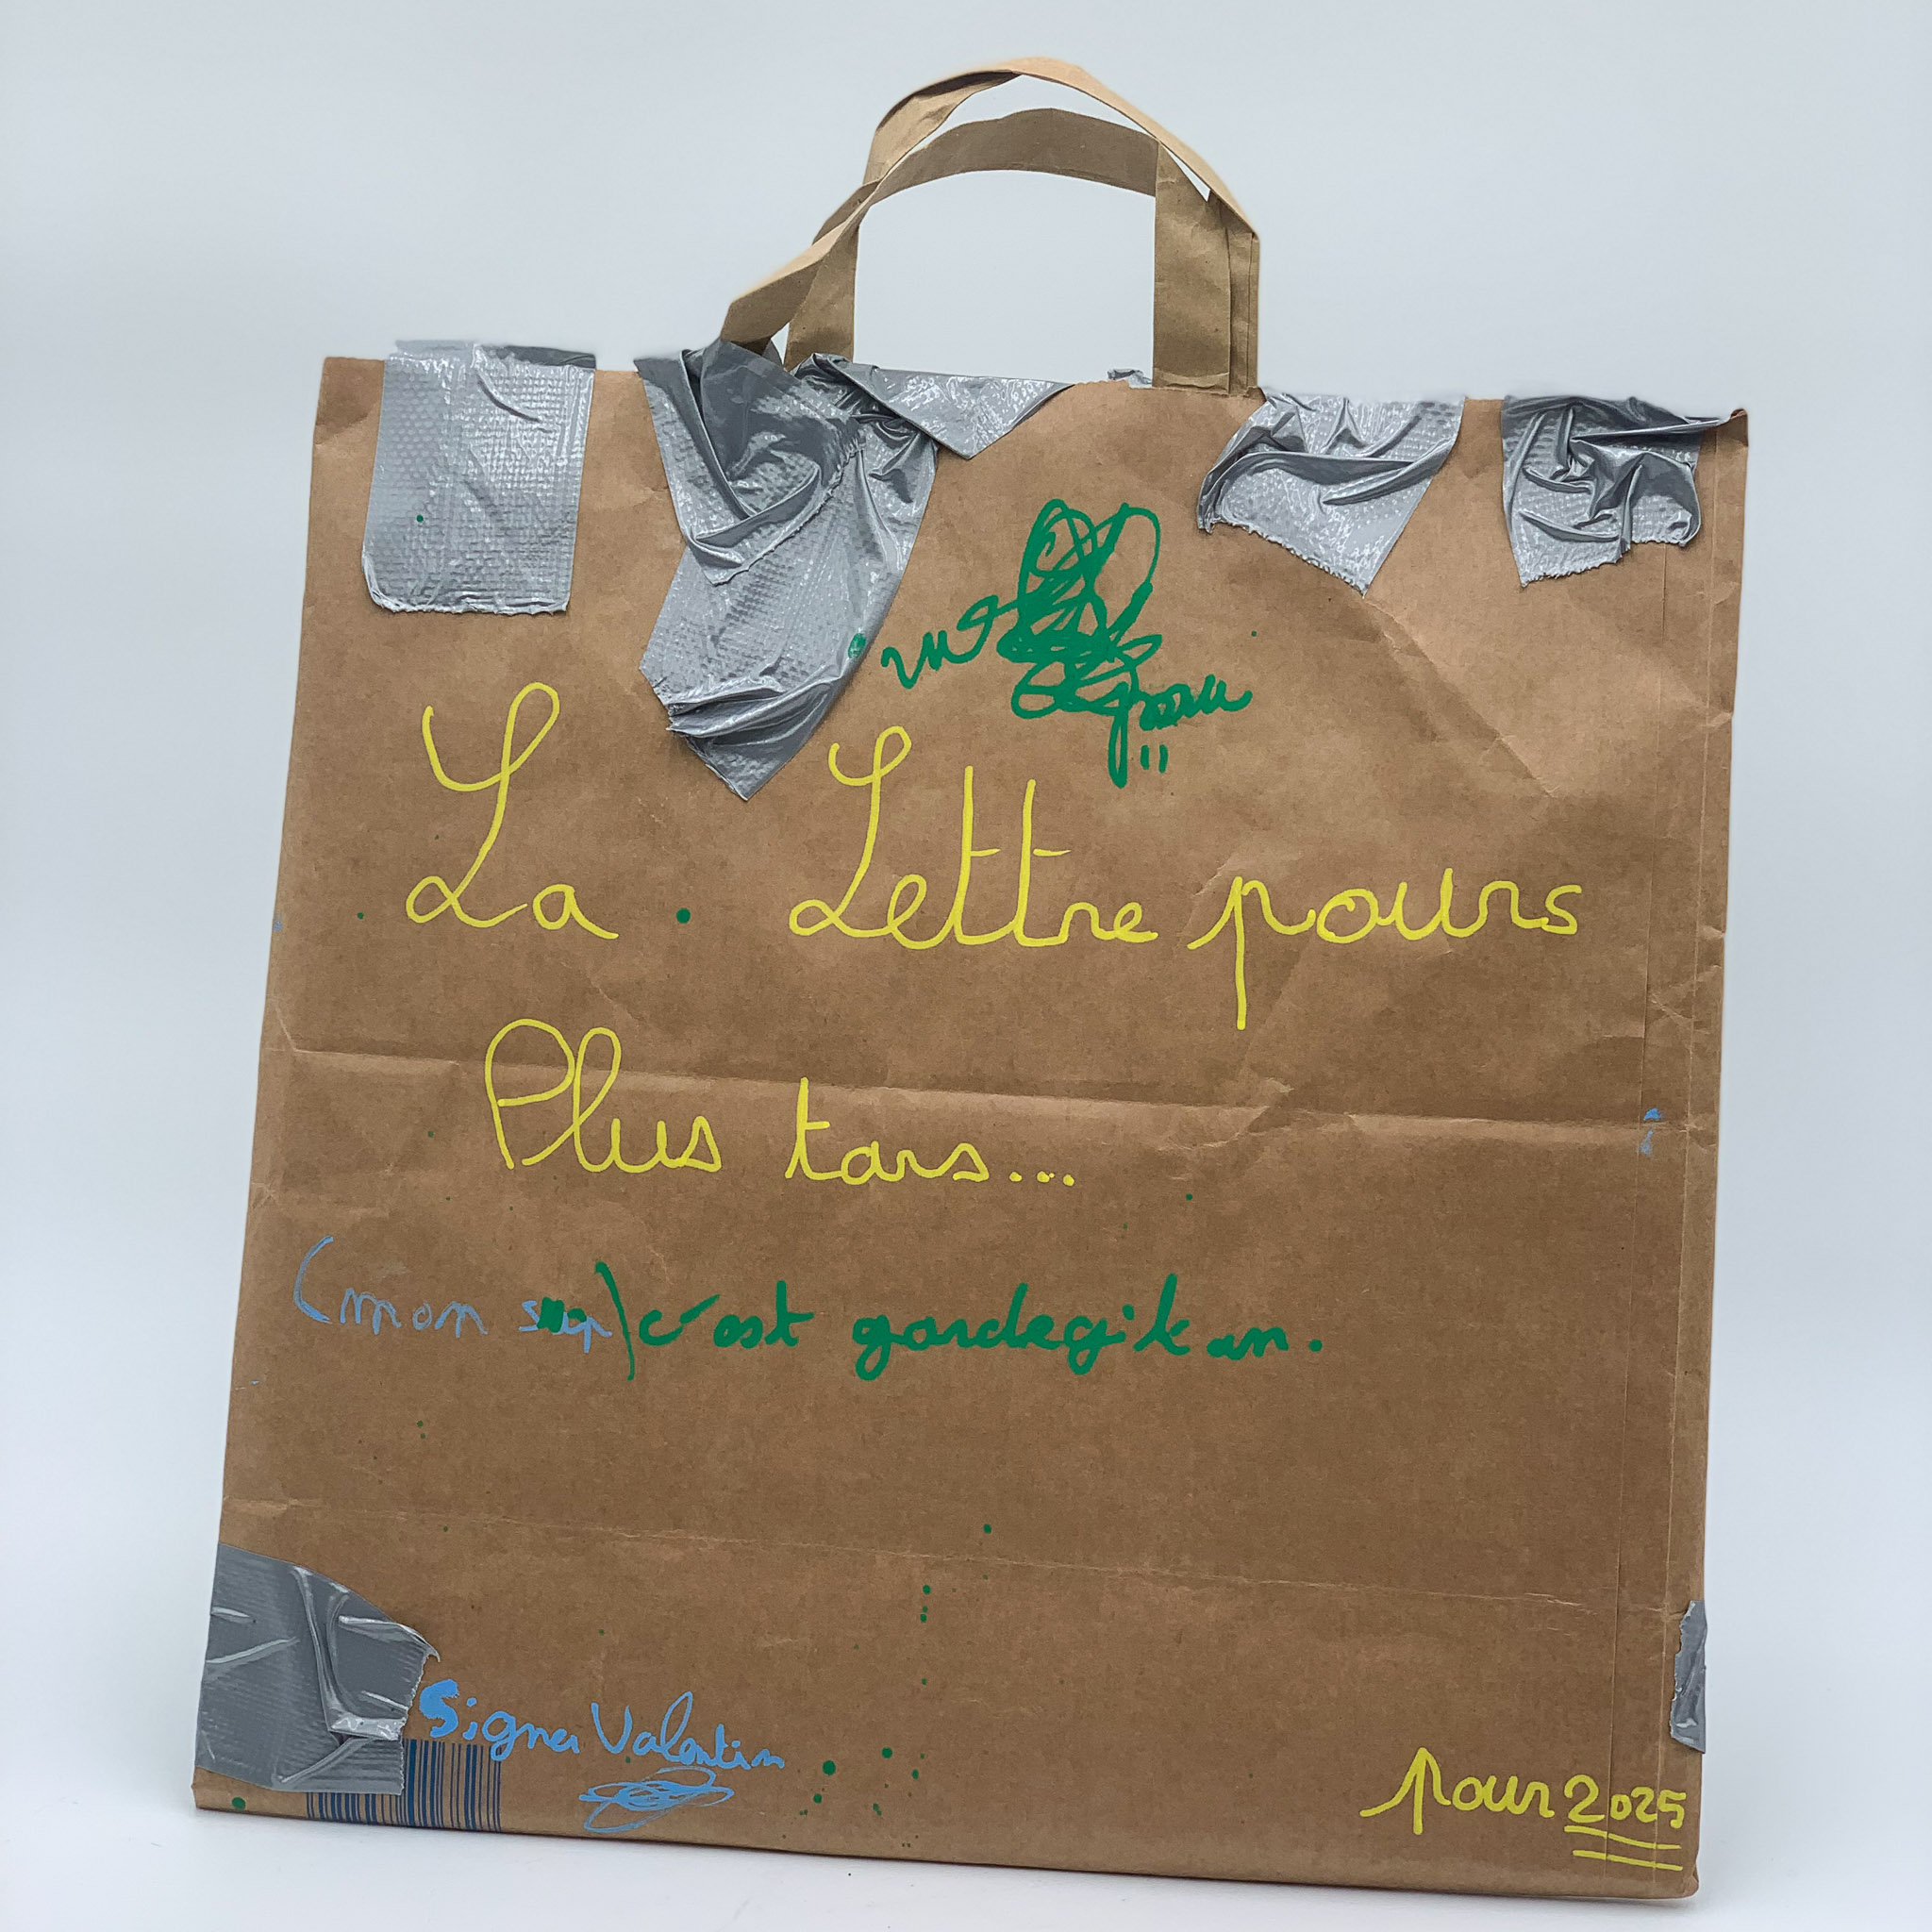 La Lettre pours
Plus tars...
(mon) c'est
Signer Valentin
pour 2025